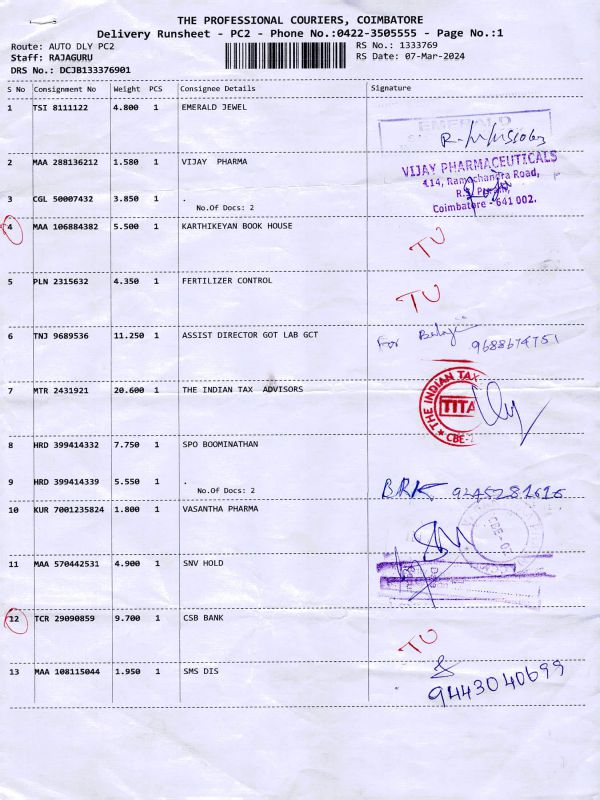 THE PROFESSIONAL COURIERS, COIMBATORE
Delivery Runsheet - PC2 - Phone No.:0422-3505555 - Page No.:1
Route: AUTO DLY PC2 RS No.: 1333769
Staff: RAJAGURU RS Date: 07-Mar-2024
DRS No.: DCJB133376901
S No Consignment No Weight PCS Consignee Details Signature
1 TSI 8111122 4.800 1 EMERALD JEWEL
EMERALD
2 MAA 288136212 1.580 1 VIJAY PHARMA
VIJAY PHARMACEUTICALS
414, Ramachandra Road,
Coimbatore - 641 002.
3 CGL 50007432 3.850 1 .
No.Of Docs: 2
4 MAA 106884382 5.500 1 KARTHIKEYAN BOOK HOUSE
TU
5 PLN 2315632 4.350 1 FERTILIZER CONTROL
TU
6 TNJ 9689536 11.250 1 ASSIST DIRECTOR GOT LAB GCT
For Balaji 9688674751
7 MTR 2431921 20.600 1 THE INDIAN TAX ADVISORS
THE INDIAN TAX
TITA
CBE-
8 HRD 399414332 7.750 1 SPO BOOMINATHAN
9 HRD 399414339 5.550 1 .
No.Of Docs: 2
BRK 9245281616
10 KUR 7001235824 1.800 1 VASANTHA PHARMA
11 MAA 570442531 4.900 1 SNV HOLD
12 TCR 29090859 9.700 1 CSB BANK
TU
13 MAA 108115044 1.950 1 SMS DIS
9443040699